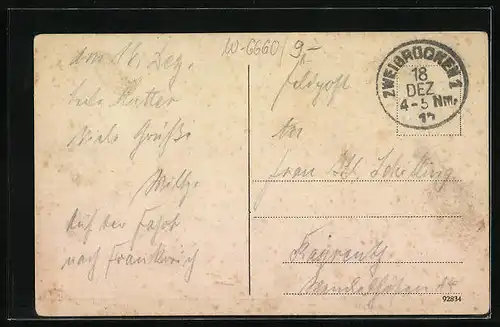 am 16. Dez.
liebe Mutter
Viele Grüße
Willy.
Auf der Fahrt
nach Frankreich
W-6660/9,-
Feldpost
ZWEIBRÜCKEN 1
18
DEZ
4-5 Nm.
17
An
Frau
Bayreuth
92834